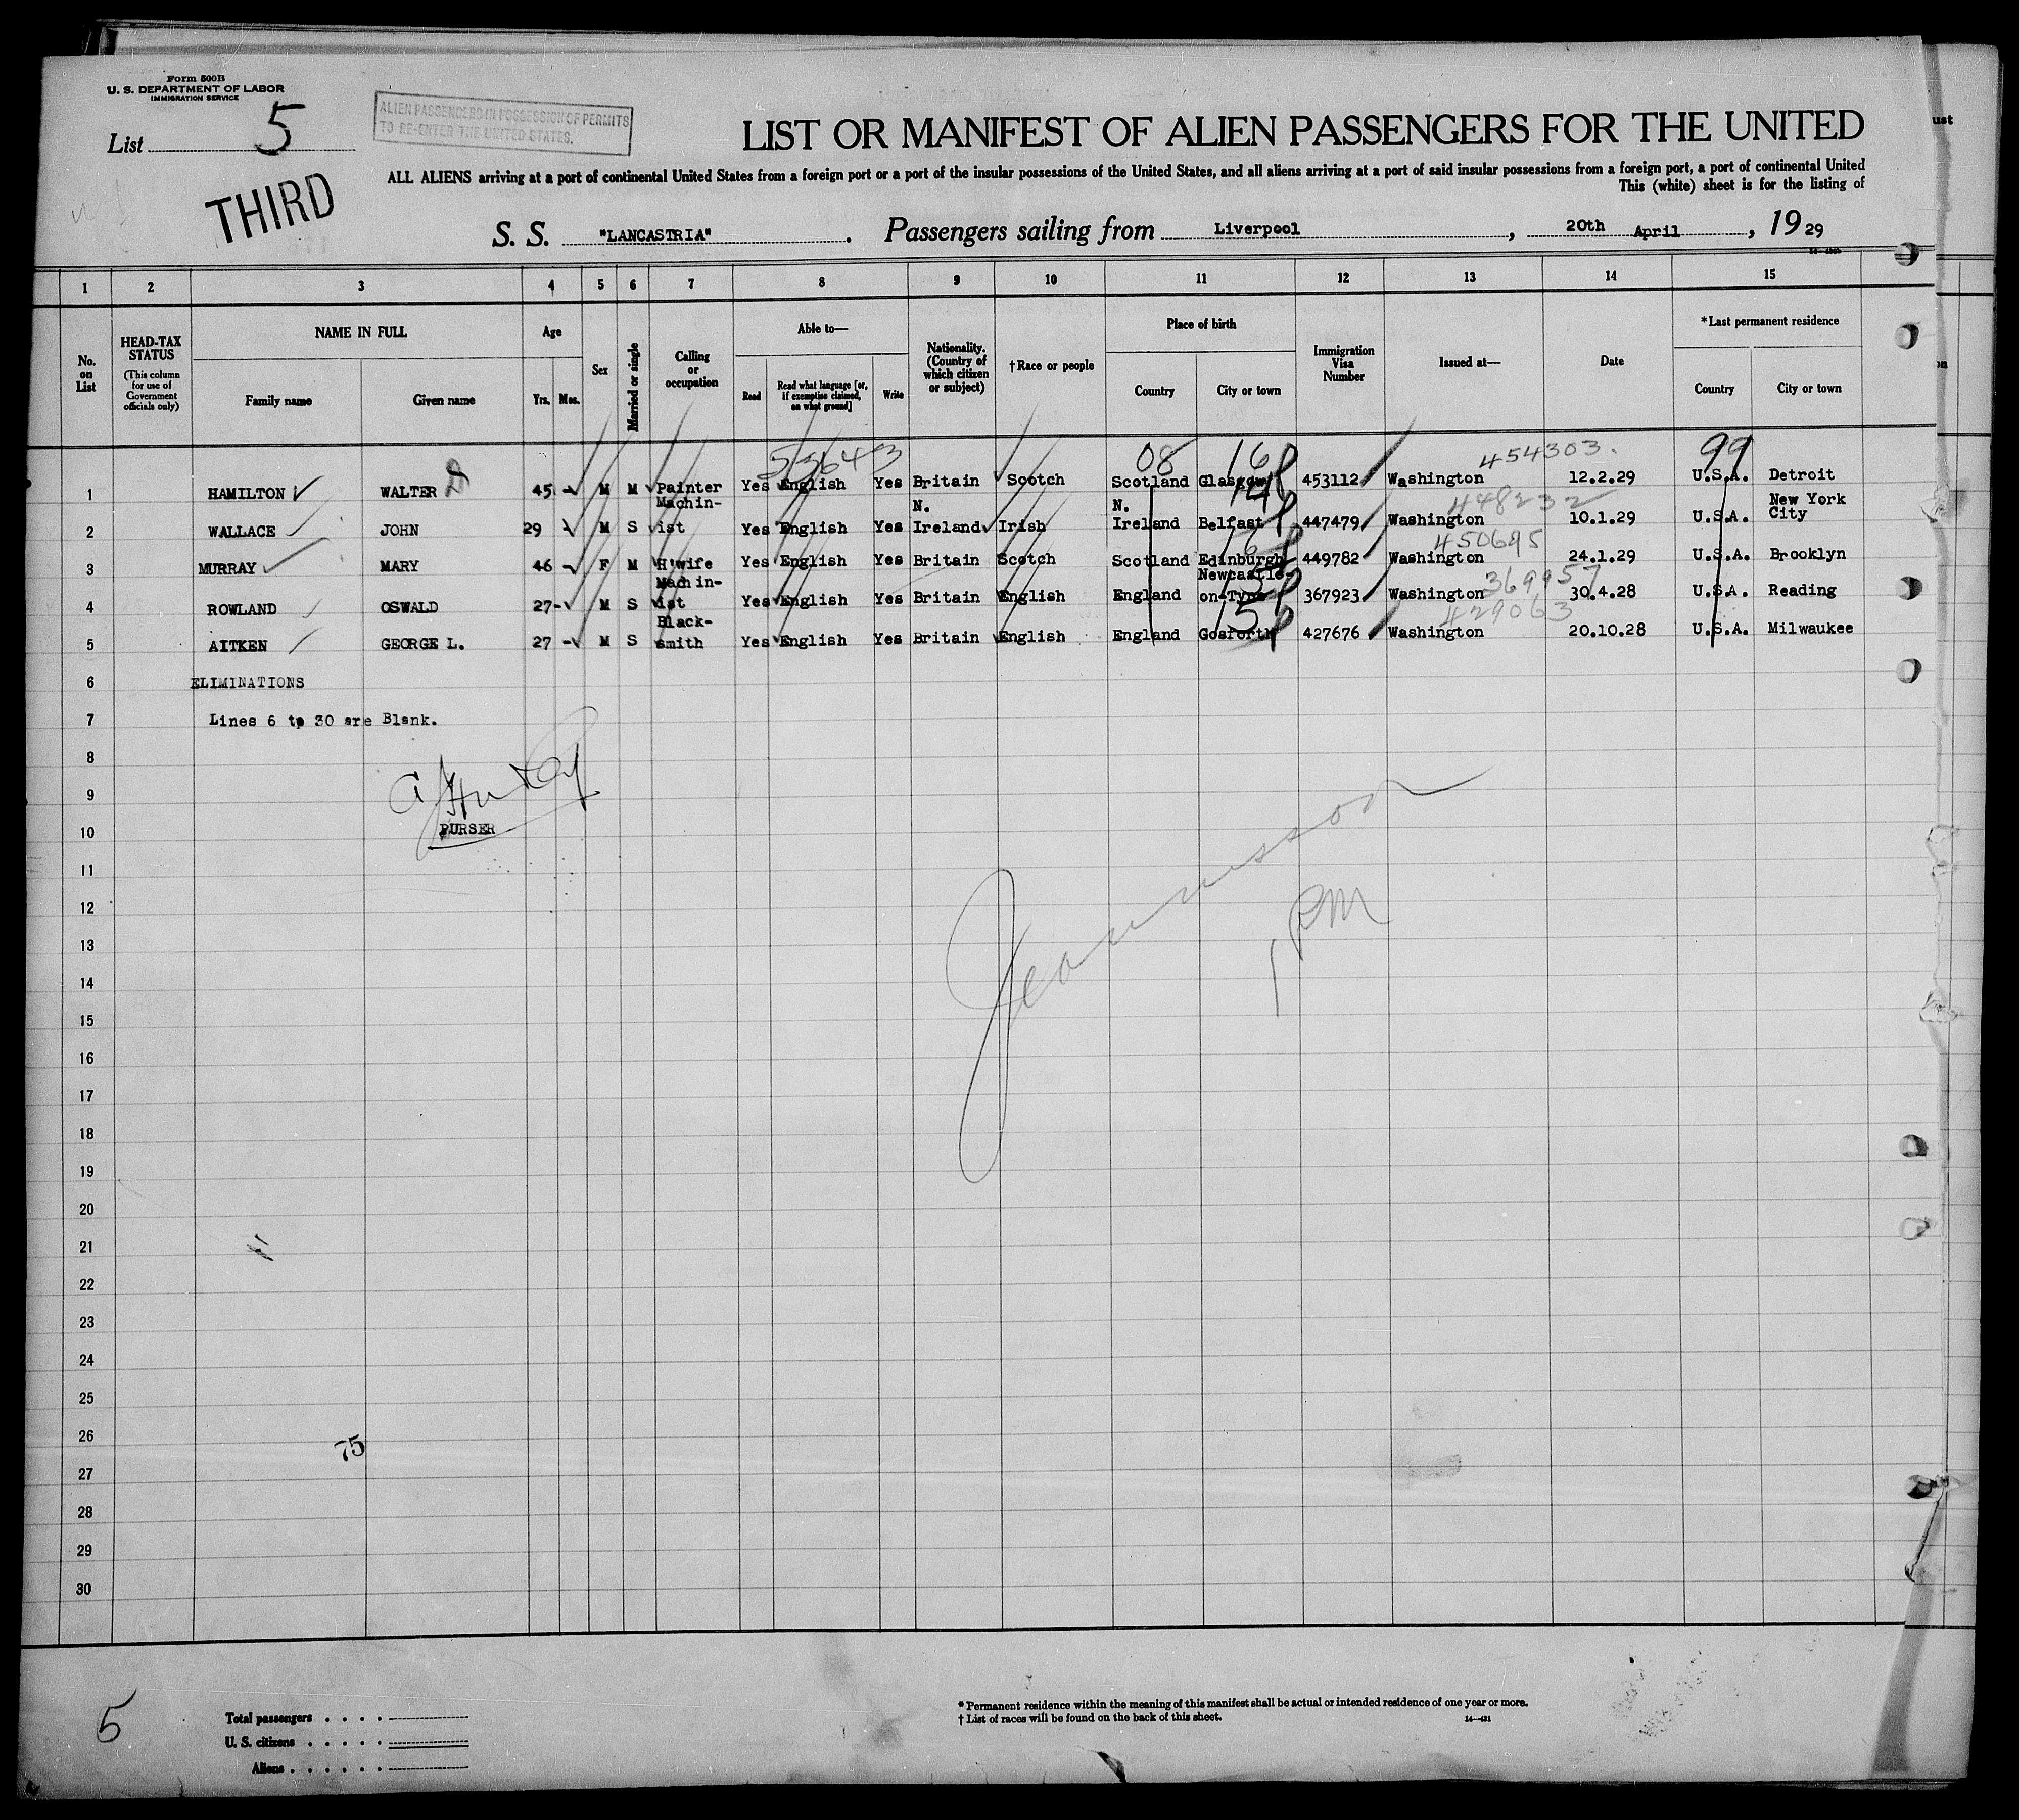 Form 500B
U. S. DEPARTMENT OF LABOR
IMMIGRATION SERVICE
List 5
ALIEN PASSENGERS IN POSSESSION OF PERMITS
TO RE-ENTER THE UNITED STATES.
THIRD
LIST OR MANIFEST OF ALIEN PASSENGERS FOR THE UNITED
ALL ALIENS arriving at a port of continental United States from a foreign port or a port of the insular possessions of the United States, and all aliens arriving at a port of said insular possessions from a foreign port, a port of continental United
This (white) sheet is for the listing of
S. S. "LANCASTRIA". Passengers sailing from Liverpool, 20th April, 19 29
1 2 3 4 5 6 7 8 9 10 11 12 13 14 15
No. on List
HEAD-TAX STATUS (This column for use of Government officials only)
NAME IN FULL
Family name Given name
Age
Yrs. Mos.
Sex
Married or single
Calling or occupation
Able to—
Read
Read what language [or, if exemption claimed, on what ground]
Write
Nationality. (Country of which citizen or subject)
†Race or people
Place of birth
Country City or town
Immigration Visa Number
Issued at—
Date
*Last permanent residence
Country City or town
53643 08 16 454303. 99
1 HAMILTON WALTER 45 - M M Painter Yes English Yes Britain Scotch Scotland Glasgow 453112 Washington 12.2.29 U.S.A. Detroit
14 448232
2 WALLACE JOHN 29 M S Machin-ist Yes English Yes N. Ireland Irish N. Ireland Belfast 447479 Washington 10.1.29 U.S.A. New York City
16 450695
3 MURRAY MARY 46 - F M H'wife Yes English Yes Britain Scotch Scotland Edinburgh 449782 Washington 24.1.29 U.S.A. Brooklyn
369957
4 ROWLAND OSWALD 27 - M S Machin-ist Yes English Yes Britain English England Newcastle-on-Tyne 367923 Washington 30.4.28 U.S.A. Reading
15 429063
5 AITKEN GEORGE L. 27 - M S Black-smith Yes English Yes Britain English England Gosforth 427676 Washington 20.10.28 U.S.A. Milwaukee
6 ELIMINATIONS
7 Lines 6 to 30 are Blank.
8
9
10 PURSER
11
12
1 PM
13
14
15
16
17
18
19
20
21
22
23
24
25
26
75
27
28
29
30
5
Total passengers . . . .
U. S. citizens . . . . .
Aliens . . . . . .
* Permanent residence within the meaning of this manifest shall be actual or intended residence of one year or more.
† List of races will be found on the back of this sheet.
14—421